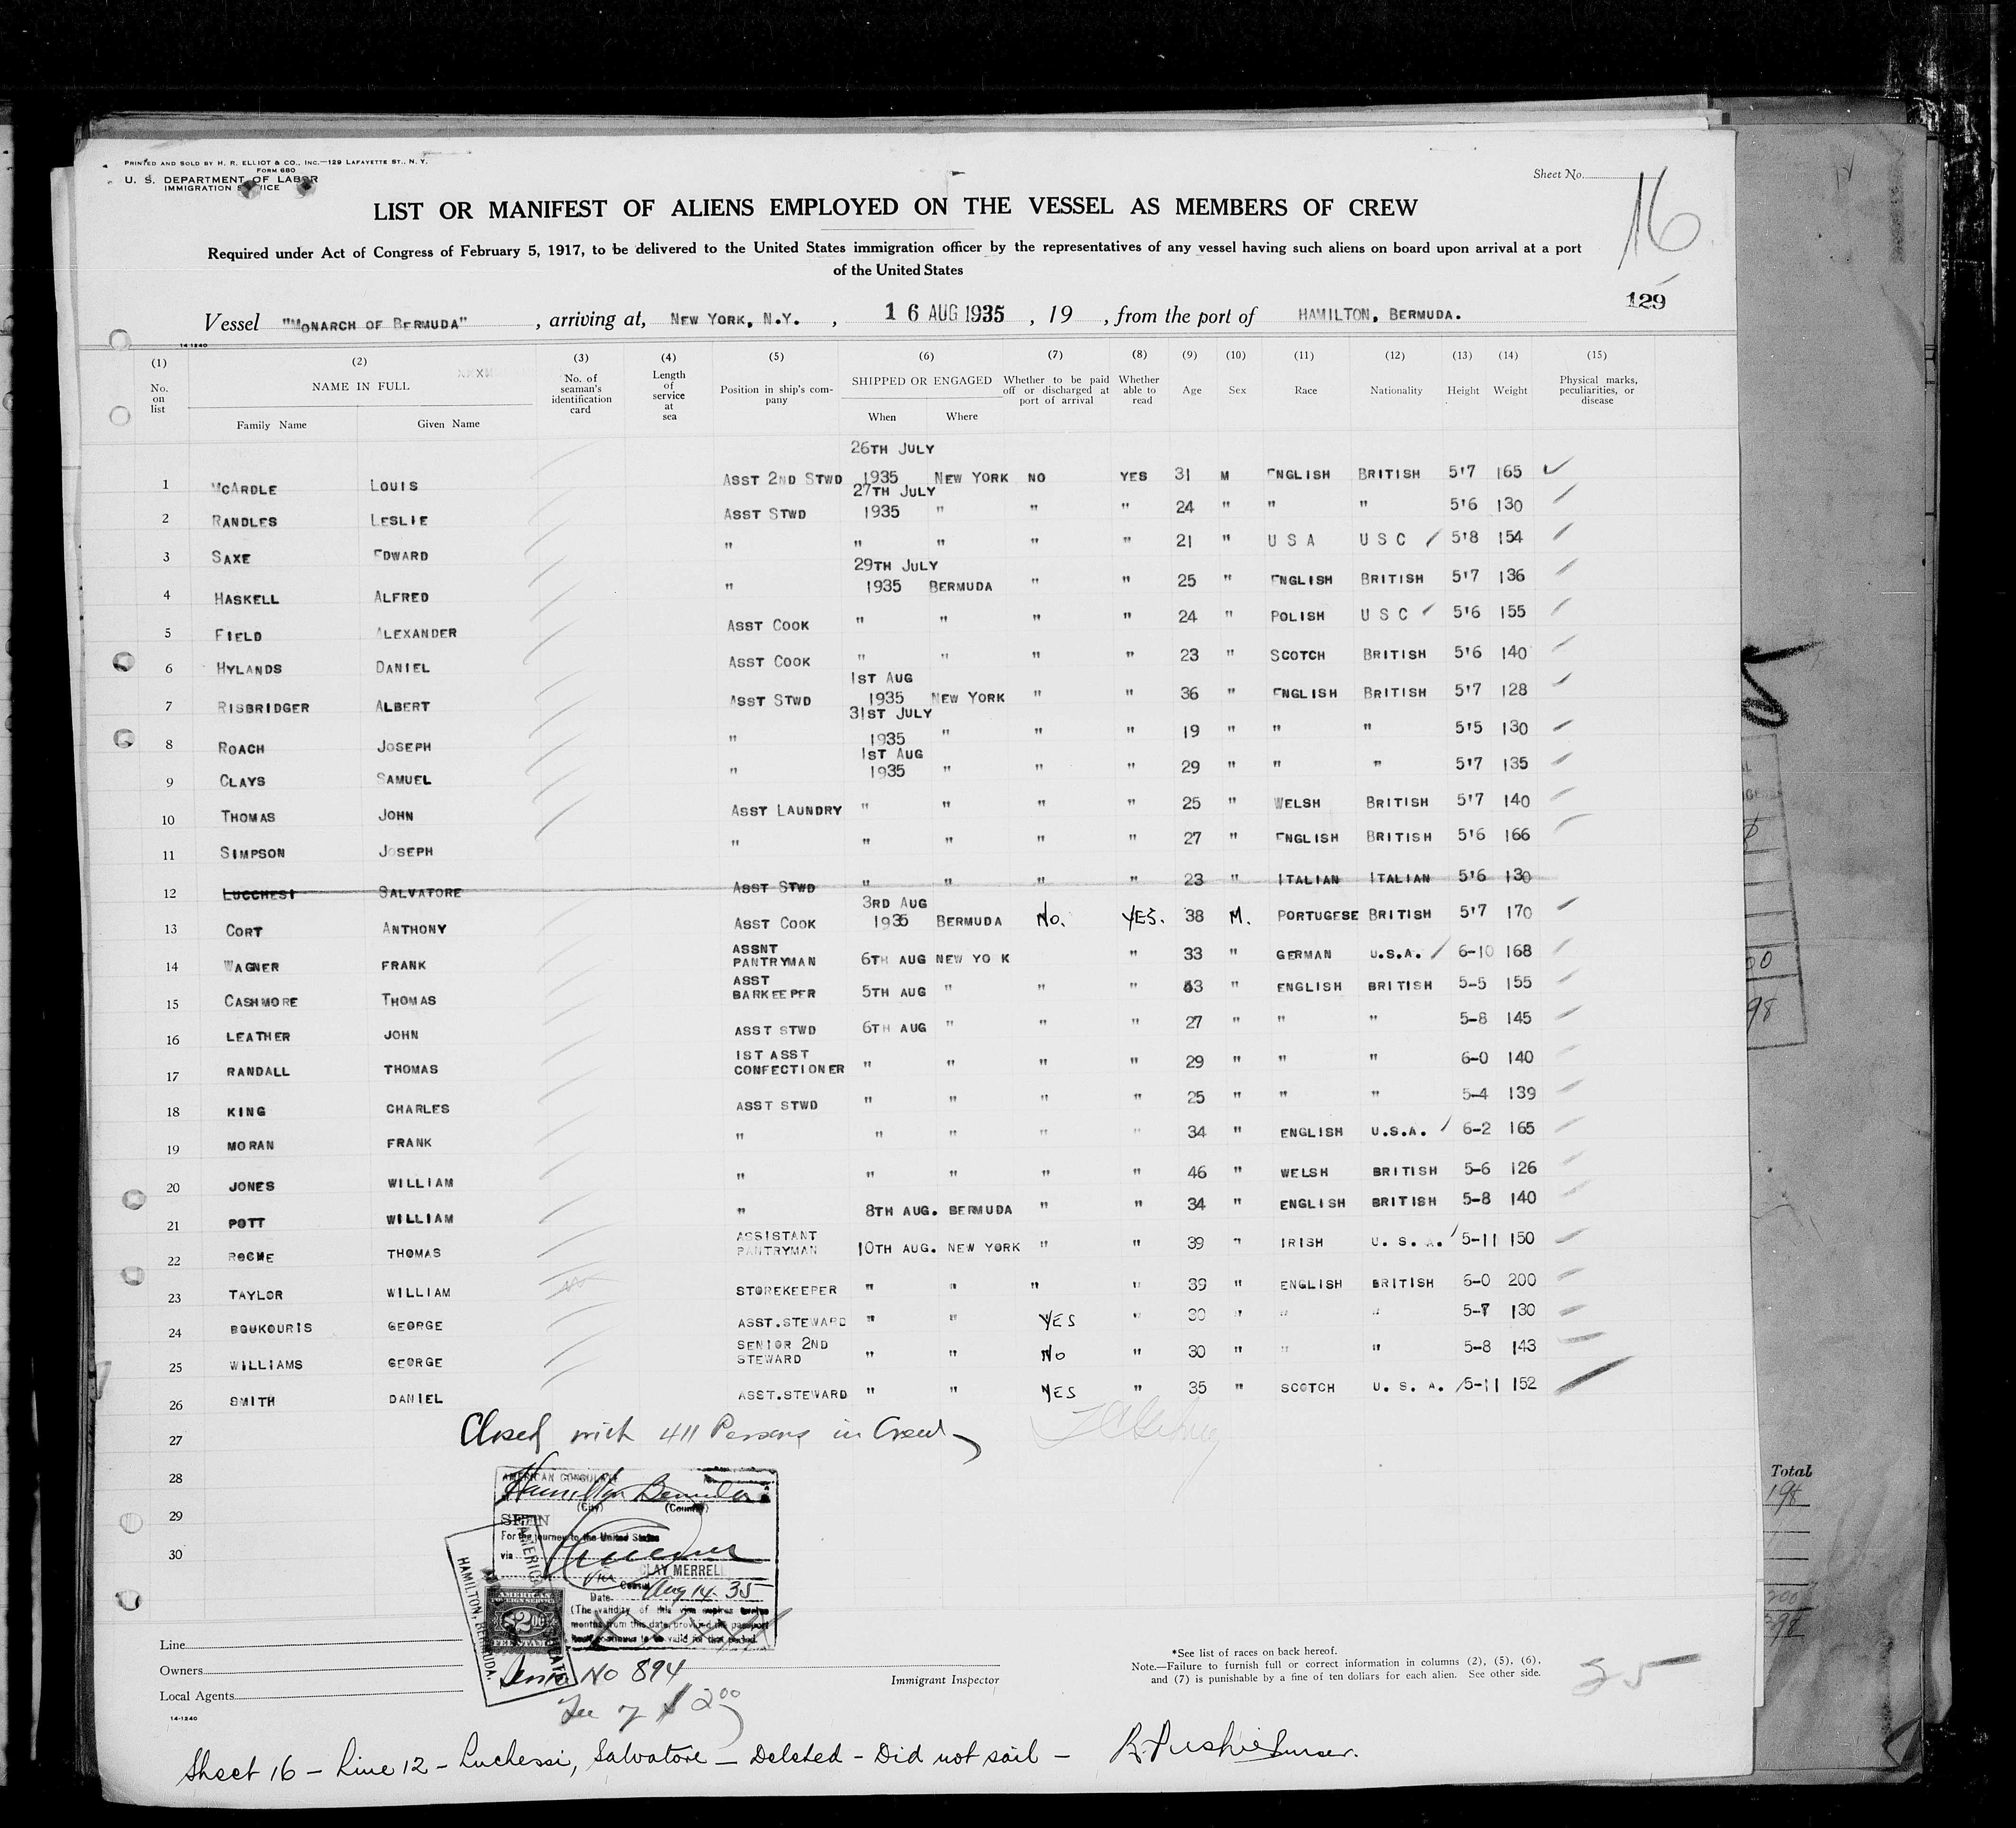 PRINTED AND SOLD BY H. R. ELLIOT & CO., INC.—129 LAFAYETTE ST., N. Y.
FORM 680
U. S. DEPARTMENT OF LABOR
IMMIGRATION SERVICE
Sheet No. 16
LIST OR MANIFEST OF ALIENS EMPLOYED ON THE VESSEL AS MEMBERS OF CREW
Required under Act of Congress of February 5, 1917, to be delivered to the United States immigration officer by the representatives of any vessel having such aliens on board upon arrival at a port
of the United States
129
Vessel "MONARCH OF BERMUDA" , arriving at, NEW YORK, N.Y. , 16 AUG 1935 , 19 , from the port of HAMILTON, BERMUDA.
14-1240
(1) (2) (3) (4) (5) (6) (7) (8) (9) (10) (11) (12) (13) (14) (15)
No. on list NAME IN FULL No. of seaman's identification card Length of service at sea Position in ship's company SHIPPED OR ENGAGED Whether to be paid off or discharged at port of arrival Whether able to read Age Sex Race Nationality Height Weight Physical marks, peculiarities, or disease
Family Name Given Name When Where
26TH JULY
1 MCARDLE LOUIS ASST 2ND STWD 1935 NEW YORK NO YES 31 M ENGLISH BRITISH 5'7 165
27TH JULY
2 RANDLES LESLIE ASST STWD 1935 " " " 24 " " " 5'6 130
3 SAXE EDWARD " " " " " 21 " U S A U S C 5'8 154
29TH JULY
4 HASKELL ALFRED " 1935 BERMUDA " " 25 " ENGLISH BRITISH 5'7 136
5 FIELD ALEXANDER ASST COOK " " " " 24 " POLISH U S C 5'6 155
6 HYLANDS DANIEL ASST COOK " " " " 23 " SCOTCH BRITISH 5'6 140
1ST AUG
7 RISBRIDGER ALBERT ASST STWD 1935 NEW YORK " " 36 " ENGLISH BRITISH 5'7 128
31ST JULY
8 ROACH JOSEPH " 1935 " " " 19 " " " 5'5 130
1ST AUG
9 CLAYS SAMUEL " 1935 " " " 29 " " " 5'7 135
10 THOMAS JOHN ASST LAUNDRY " " " " 25 " WELSH BRITISH 5'7 140
11 SIMPSON JOSEPH " " " " " 27 " ENGLISH BRITISH 5'6 166
12 LUCCHESI SALVATORE ASST STWD " " " " 23 " ITALIAN ITALIAN 5'6 130
3RD AUG
13 CORT ANTHONY ASST COOK 1935 BERMUDA No. YES. 38 M. PORTUGESE BRITISH 5'7 170
14 WAGNER FRANK ASSNT PANTRYMAN 6TH AUG NEW YO K " 33 " GERMAN U.S.A. 6-10 168
15 CASHMORE THOMAS ASST BARKEEPER 5TH AUG " " " 43 " ENGLISH BRITISH 5-5 155
16 LEATHER JOHN ASST STWD 6TH AUG " " " 27 " " " 5-8 145
17 RANDALL THOMAS 1ST ASST CONFECTIONER " " " " 29 " " " 6-0 140
18 KING CHARLES ASST STWD " " " " 25 " " " 5-4 139
19 MORAN FRANK " " " " " 34 " ENGLISH U.S.A. 6-2 165
20 JONES WILLIAM " " " " " 46 " WELSH BRITISH 5-6 126
21 POTT WILLIAM " 8TH AUG. BERMUDA " " 34 " ENGLISH BRITISH 5-8 140
22 ROCHE THOMAS ASSISTANT PANTRYMAN 10TH AUG. NEW YORK " " 39 " IRISH U. S. A. 5-11 150
23 TAYLOR WILLIAM STOREKEEPER " " " " 39 " ENGLISH BRITISH 6-0 200
24 BOUKOURIS GEORGE ASST.STEWARD " " YES " 30 " " " 5-7 130
25 WILLIAMS GEORGE SENIOR 2ND STEWARD " " No " 30 " " " 5-8 143
26 SMITH DANIEL ASST.STEWARD " " YES " 35 " SCOTCH U. S. A. 5-11 152
27 Closed with 411 Persons in Crew
28
29
30
AMERICAN CONSULATE
Hamilton Bermuda
(City) (Country)
SEEN
For the journey to the United States
via
CLAY MERRELL
Consul
Date Aug 14. 35
(The validity of this visa expires twelve
months from this date, provided the passport
continues to be valid for that period.
AMERICAN CONSULATE
HAMILTON, BERMUDA.
AMERICAN
FOREIGN SERVICE
$2.00
FEE STAMP
Service No 894
Fee of $2.00
Line
Owners
Local Agents
14-1240
Immigrant Inspector
*See list of races on back hereof.
Note.—Failure to furnish full or correct information in columns (2), (5), (6),
and (7) is punishable by a fine of ten dollars for each alien. See other side.
25
Sheet 16 - Line 12 - Luchessi, Salvatore - Deleted - Did not sail - Purser.
Total
198
200
398